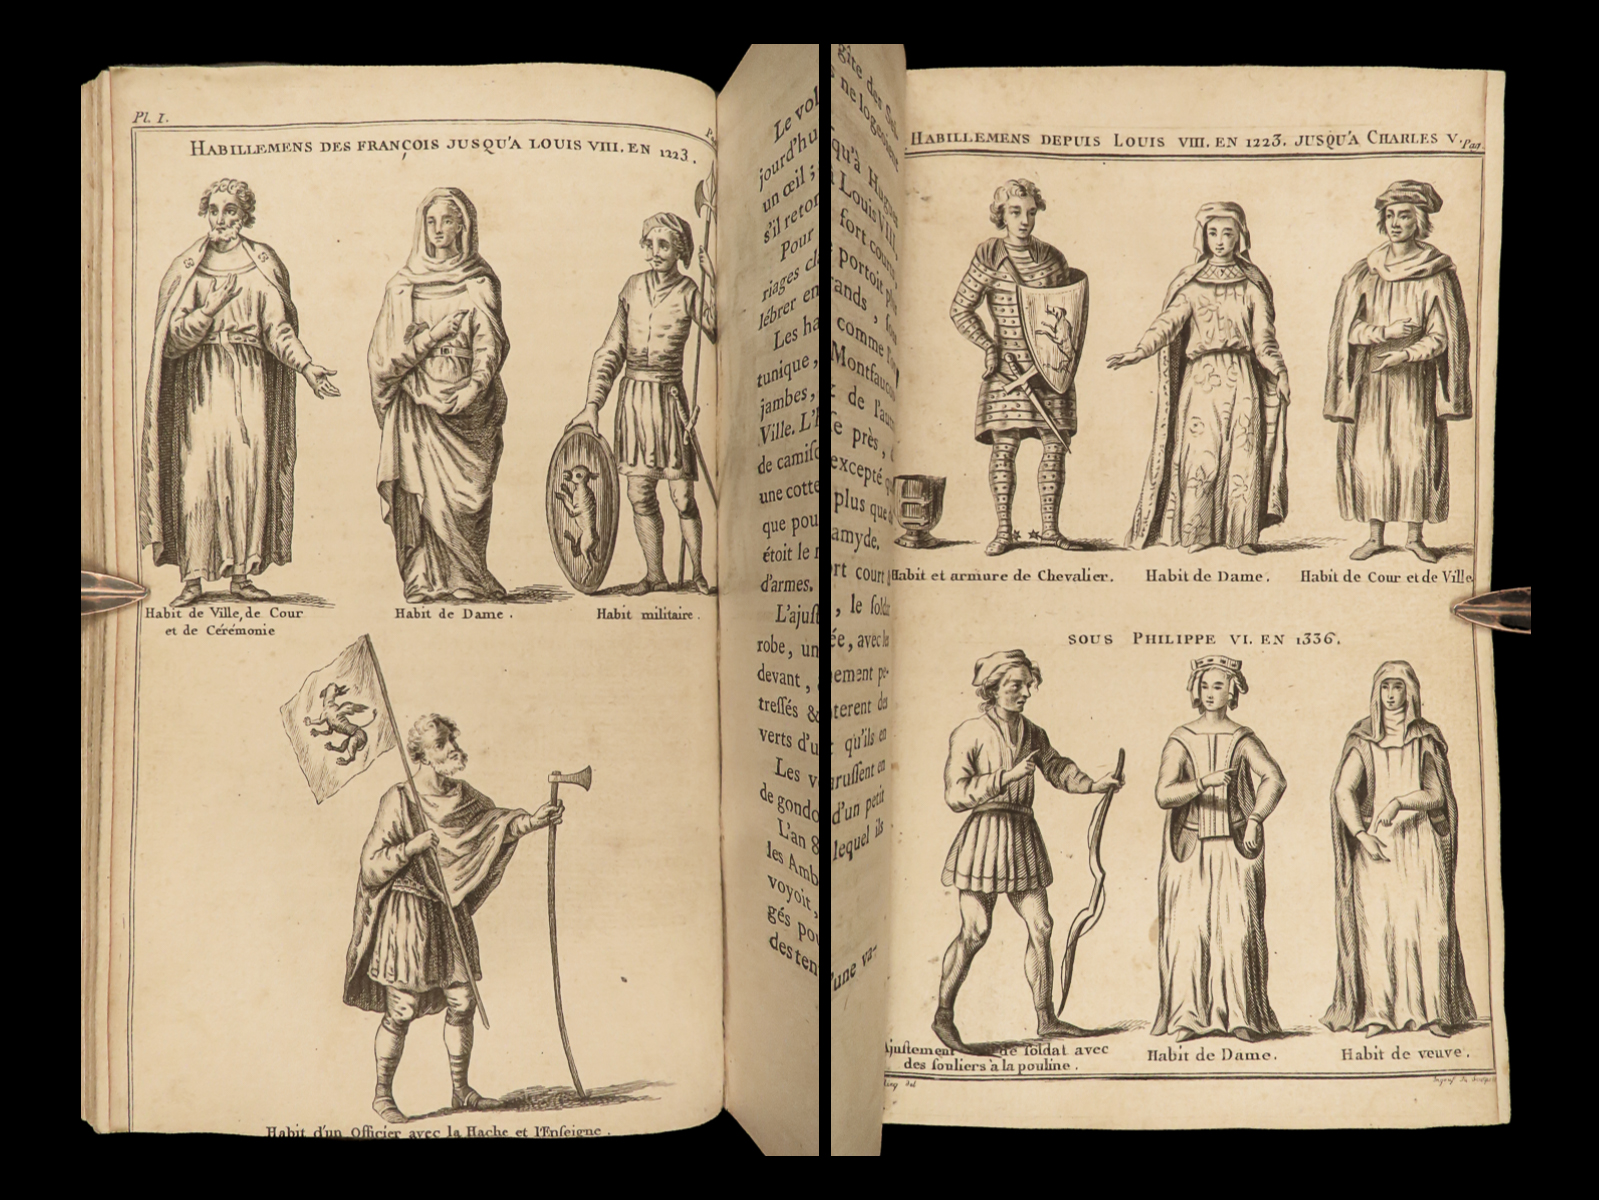 Pl. I.
HABILLEMENS DES FRANÇOIS JUSQU'A LOUIS VIII. EN 1223.
Habit de Ville, de Cour
et de Cérémonie
Habit de Dame.
Habit militaire.
Habit d'un Officier avec la Hache et l'Enseigne.
Le vol
jourd'hu
un œil ;
s'il retor
Pour
riages cl
lébrer en
Les ha
tunique,
jambes,
Ville. L'
de camiſ
une cotte
que pou
étoit le
d'armes.
L'ajuſt
robe, un
devant,
treſſés &
verts d'u
Les v
de gondo
L'an 8
les Amb
voyoit,
gés pou
des ten
gîte des
ne logeoient
qu'à Hugues
Louis VIII,
fort courts,
portoit plus
ands,
comme
Montfaucon
de l'au
e près,
excepté
plus que
amyde.
rt court
, le ſolda
ée, avec les
ement pe-
terent des
qu'ils en
aruſſent en
d'un petit
lequel ils
'une va-
HABILLEMENS DEPUIS LOUIS VIII. EN 1223. JUSQU'A CHARLES V. Pag.
Habit et armure de Chevalier.
Habit de Dame.
Habit de Cour et de Ville
SOUS PHILIPPE VI. EN 1336.
Ajuſtement de ſoldat avec
des ſouliers à la pouline.
Habit de Dame.
Habit de veuve.